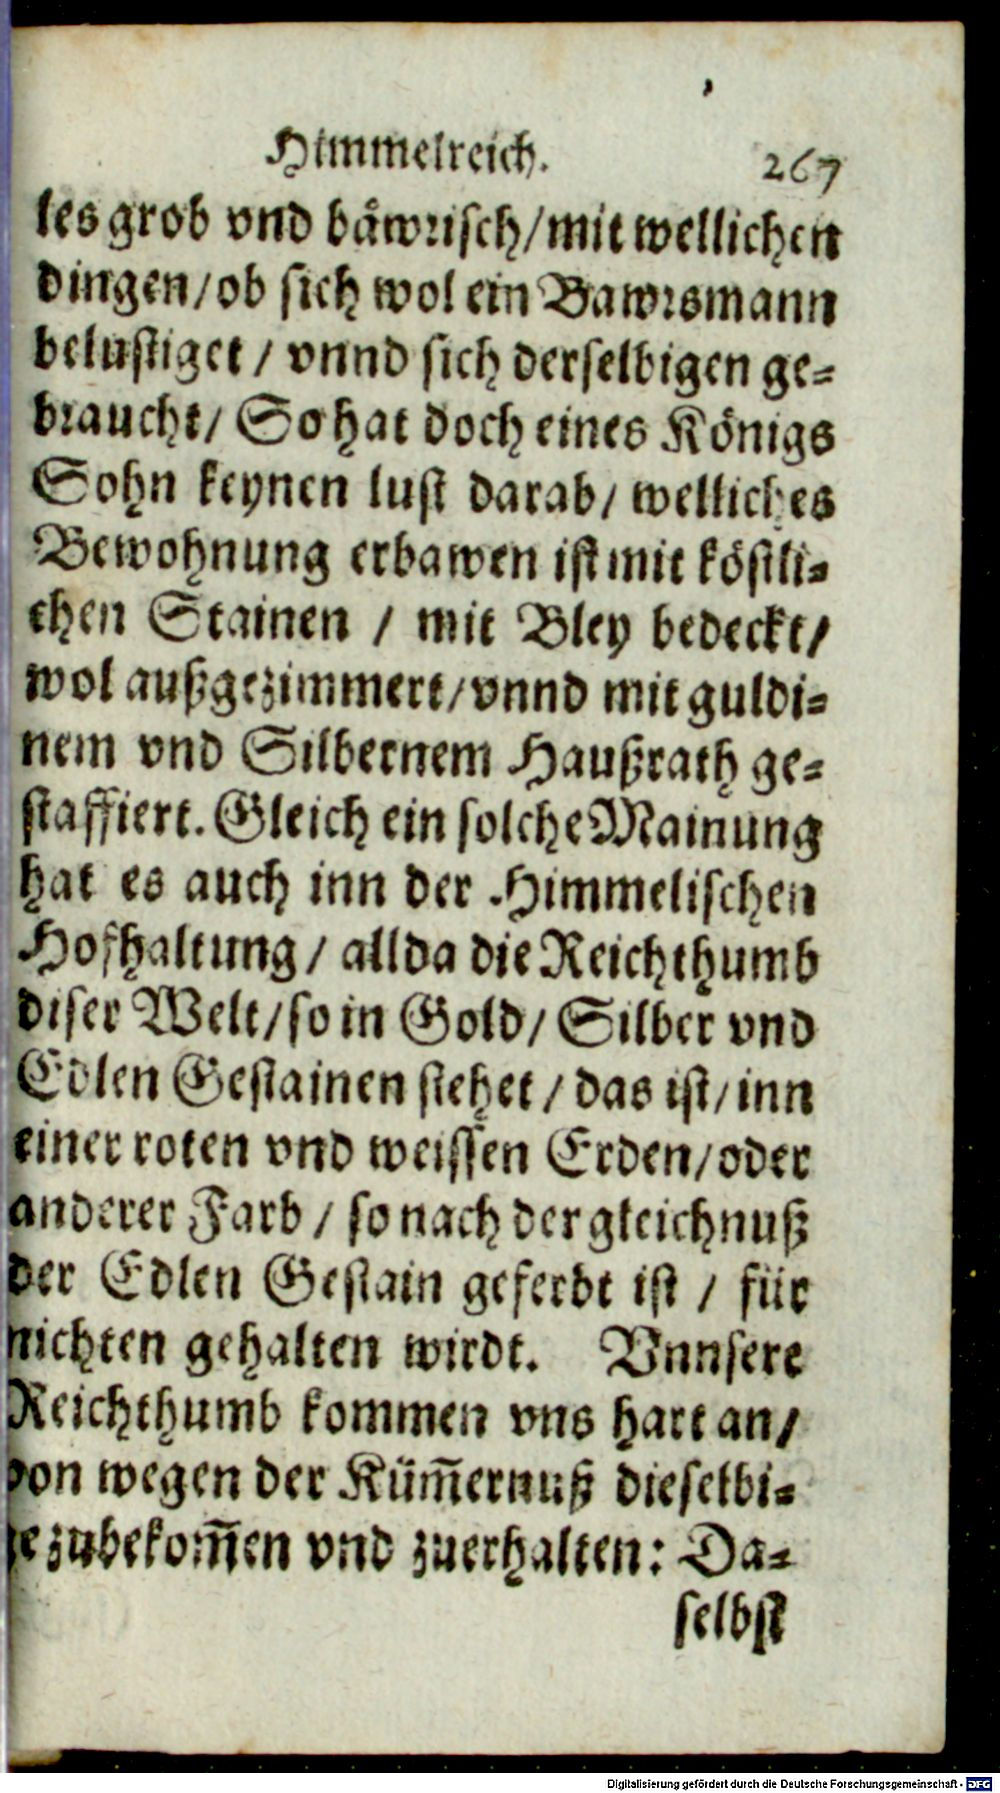 Himmelreich. 267
les grob vnd båwrisch/mit wellichen
dingen/ob sich wol ein Bawrsmann
belustiget / vnnd sich derselbigen ge-
braucht/ So hat doch eines Königs
Sohn keynen lust darab/ welliches
Bewohnung erbawen ist mit köstli-
chen Stainen / mit Bley bedeckt/
wol außgezimmert/vnnd mit guldi-
nem vnd Silbernem Haußrath ge-
staffiert. Gleich ein solche Mainung
hat es auch inn der Himmelischen
Hofhaltung/ allda die Reichthumb
diser Welt/so in Gold/ Silber vnd
Edlen Gestainen stehet/ das ist/inn
einer roten vnd weissen Erden/oder
anderer Farb/ so nach der gleichnuß
der Edlen Gestain geferbt ist / für
nichten gehalten wirdt. Vnnsere
Reichthumb kommen vns hart an/
von wegen der Küm̃ernuß dieselbi-
ge zubekom̃en vnd zuerhalten: Da-
selbst
Digitalisierung gefördert durch die Deutsche Forschungsgemeinschaft - DFG